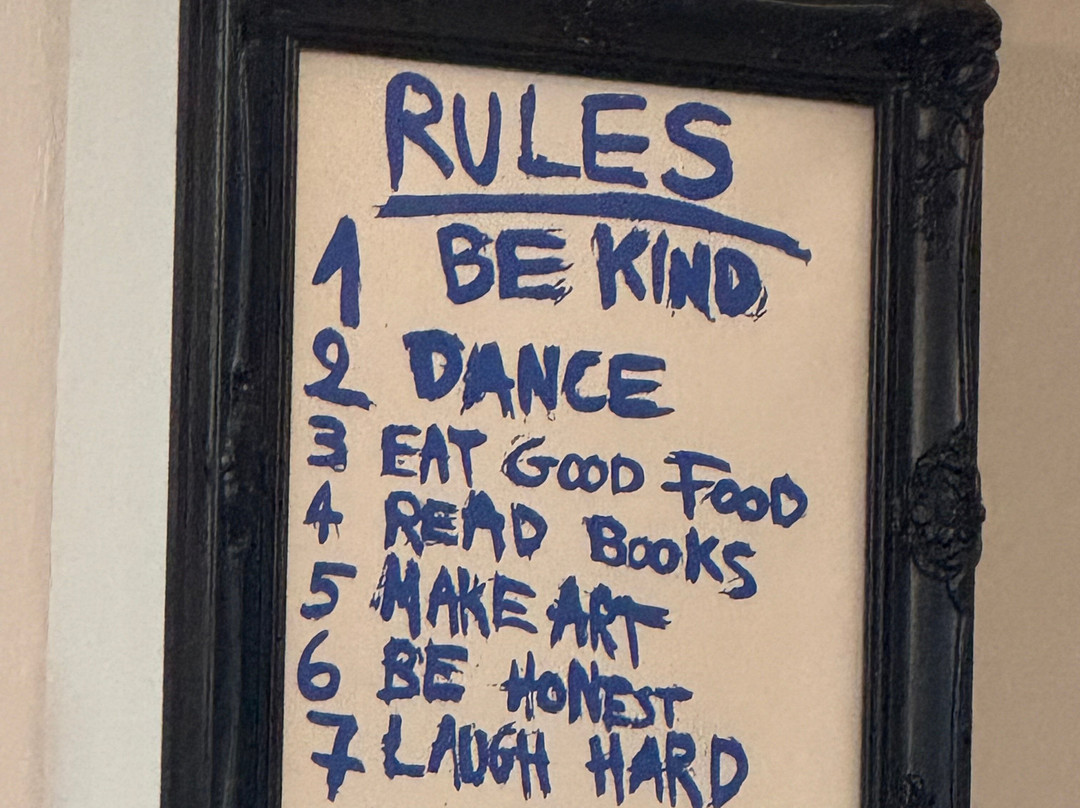 RULES
1 BE KIND
2 DANCE
3 EAT GOOD FOOD
4 READ BOOKS
5 MAKE ART
6 BE HONEST
7 LAUGH HARD